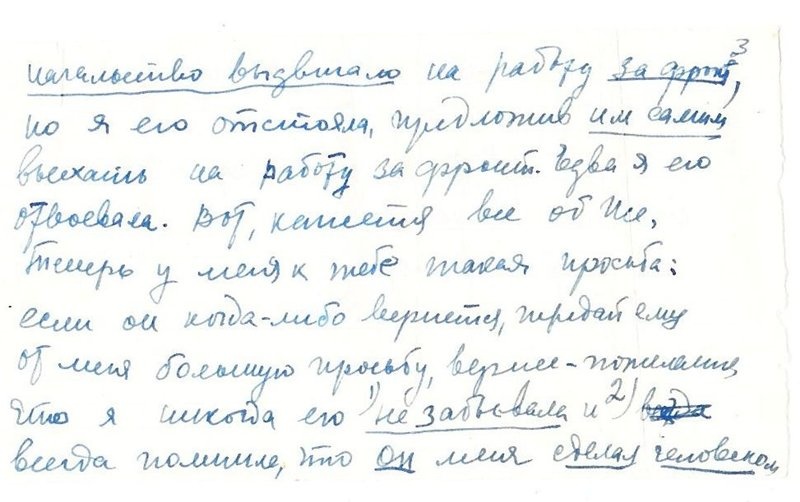 3
начальство выдвигало на работу за фронт,
но я его отстояла, предложив им самим
выехать на работу за фронт. Едва я его
отвоевала. Вот, кажется все об
Теперь у меня к тебе такая просьба:
если он когда-либо вернется, передай ему
от меня большую просьбу, вернее - пожелание,
что я никогда его 1) не забывала и 2)
всегда помнила, что он меня сделал человеком